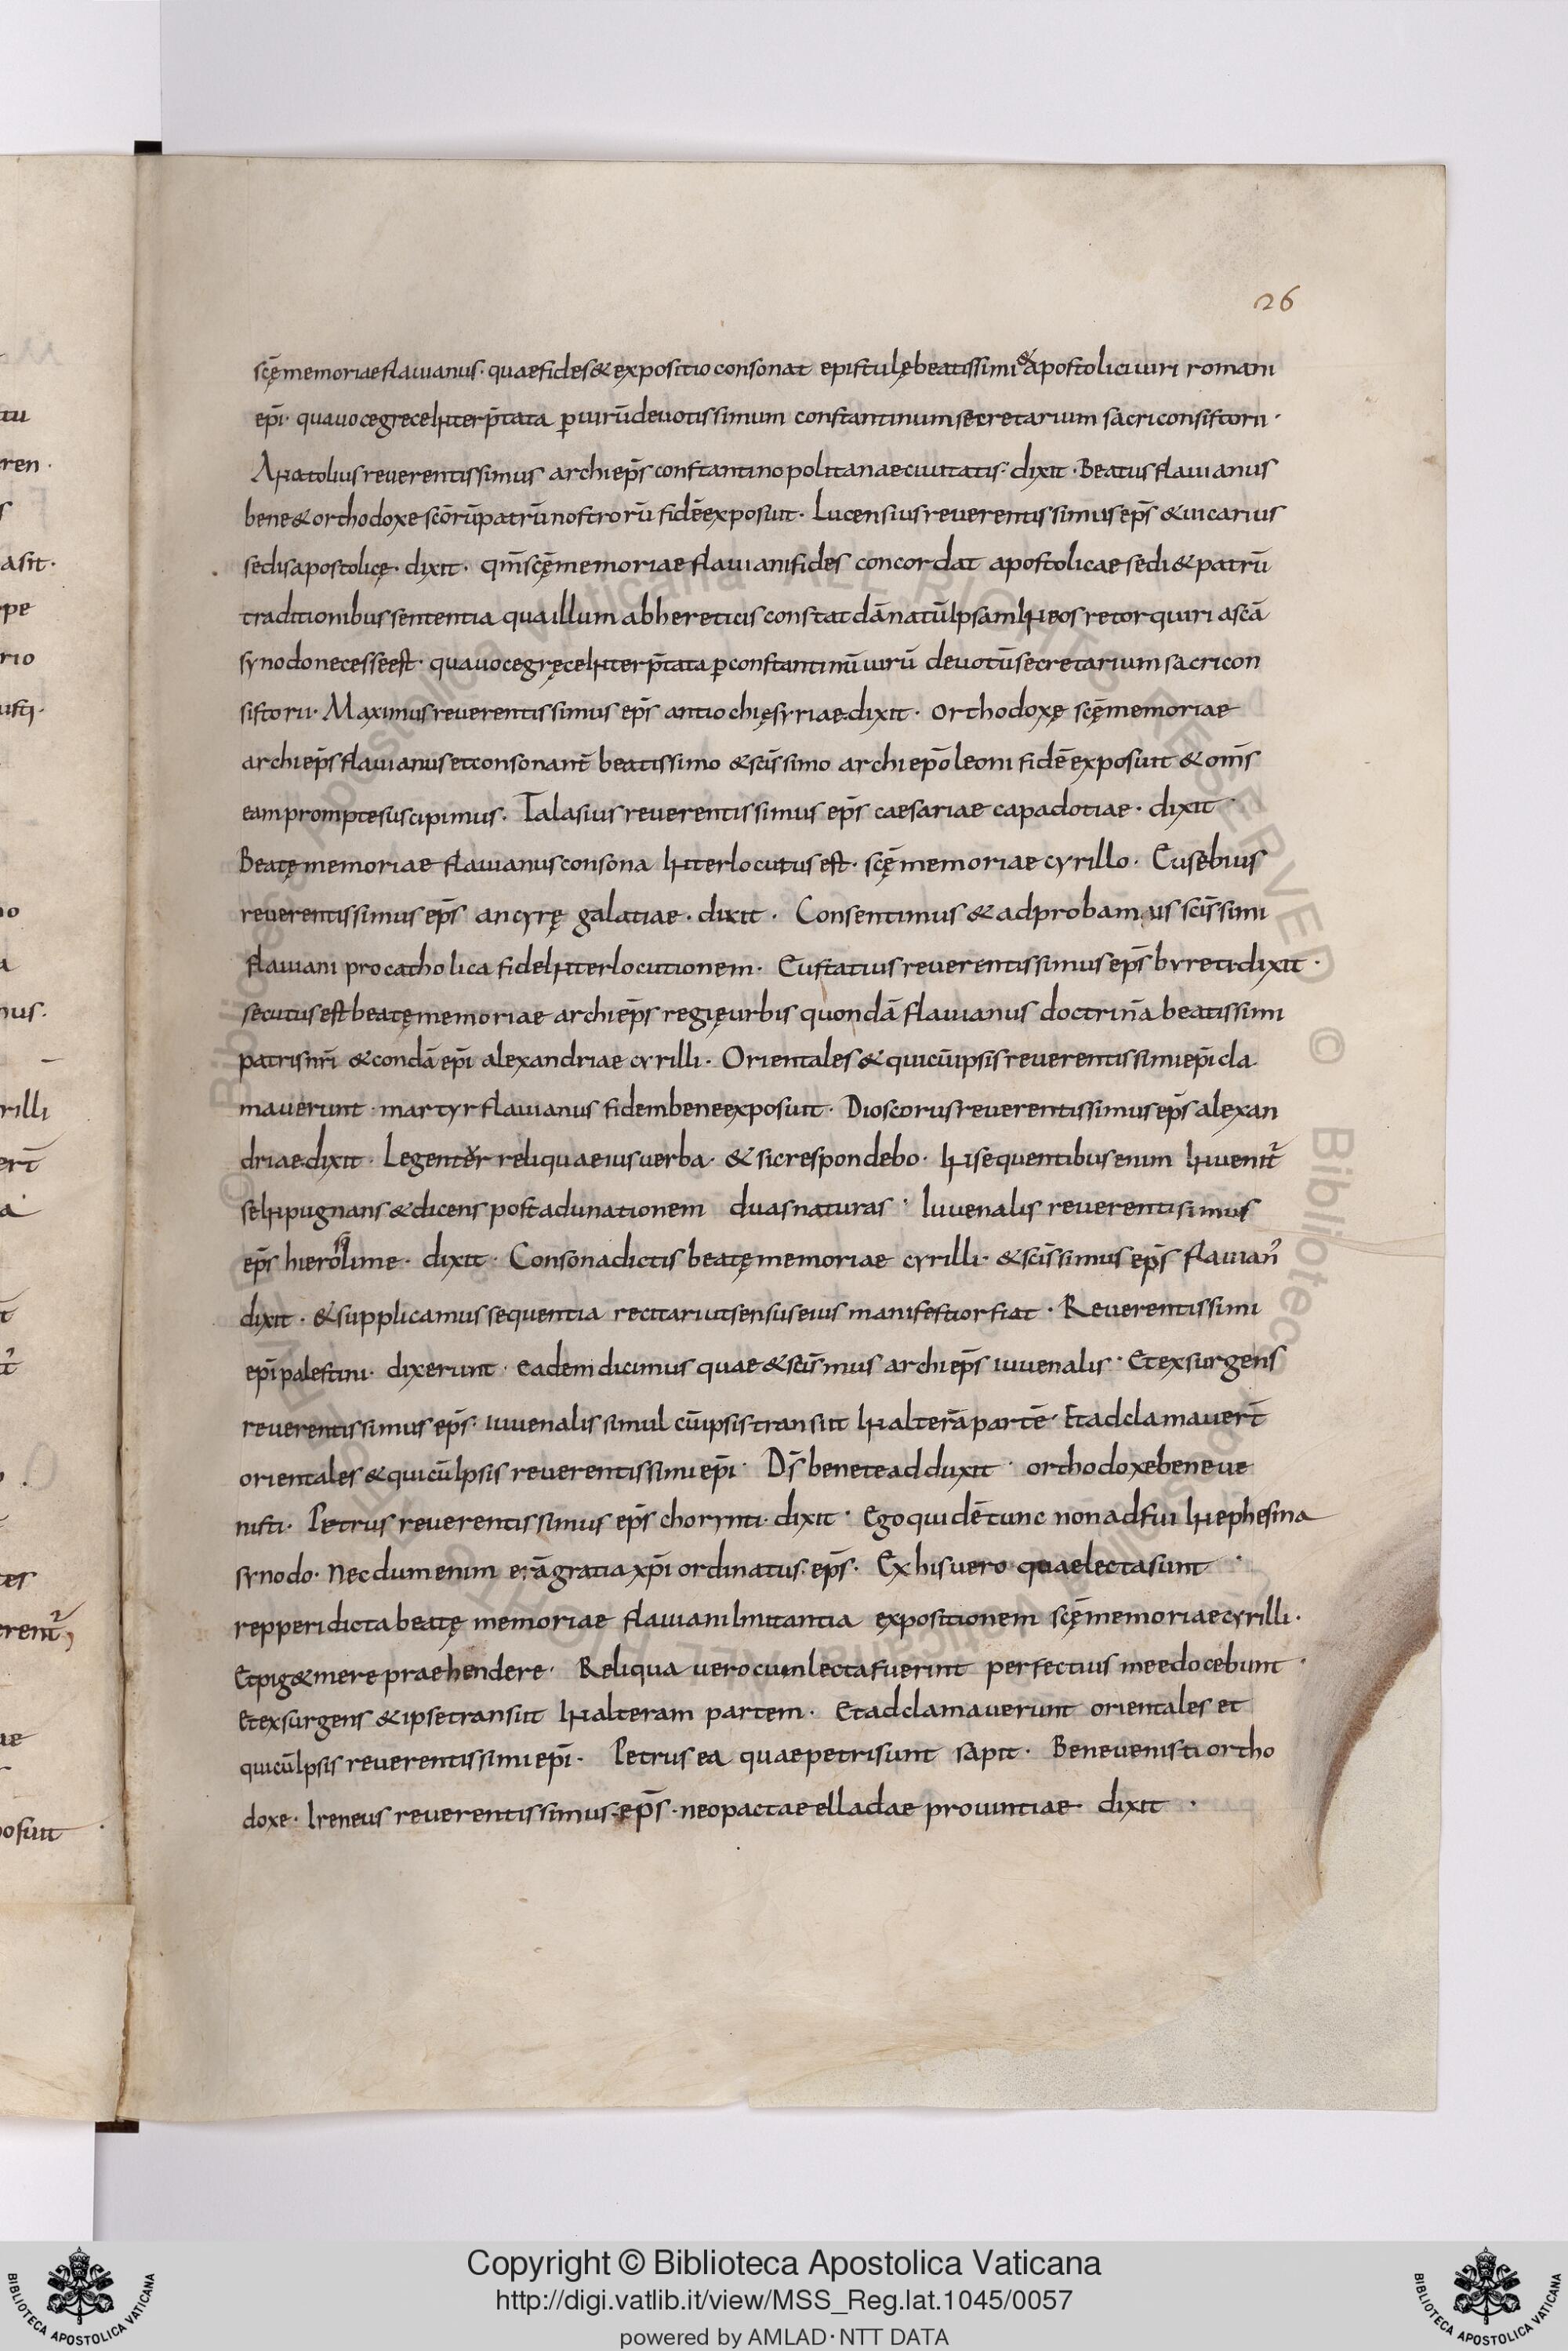 26
scę̄ memoriae flauianus· quae fides & expositio consonat epistulę beatissimi & apostolici uiri romani
ep̄i· qua uoce grece interp̄tata p uirū deuotissimum constantinum secretarium sacri consistorii·
Anatolius reuerentissimus archiep̄s constantinopolitanae ciuitatis· dixit· Beatus flauianus
bene & orthodoxe scōrū patrū nostrorū fidē exposuit· Lucensius reuerentissimus ep̄s & uicarius
sedis apostolicę· dixit· qm̄ scę̄ memoriae flauiani fides concordat apostolicae sedi & patrū
traditionibus sententia qua illum ab hereticis constat dānatū ipsam in eos retorquiri a scā
synodo necesse est· qua uoce gręce interp̄tata p constantinū uirū deuotū secretarium sacri con
sistorii· Maximus reuerentissimus ep̄s antiochię syriae· dixit· orthodoxę scę̄ memoriae
archiep̄s flauianus et consonant̄ beatissimo & scīssimo archiep̄o leoni fidē exposuit & om̄s
eam prompte suscipimus· Talasius reuerentissimus ep̄s caesariae capadotiae· dixit·
Beatę memoriae flauianus consona interlocutus est· scę̄ memoriae cyrillo· Eusebius
reuerentissimus ep̄s ancyrę galatiae· dixit· Consentimus & adprobamus scīssimi
flauiani pro catholica fide interlocutionem· Eustatius reuerentissimus ep̄s byreti· dixit·
secutus est beatę memoriae archiep̄s regię urbis quondā flauianus doctrinā beatissimi
patris nr̄i & condā ep̄i alexandriae cyrilli· Orientales & qui cū ipsis reuerentissimi ep̄i cla
mauerunt· martyr flauianus fidem bene exposuit· Dioscorus reuerentissimus ep̄s alexan
driae· dixit· Legentēr reliqua eius uerba· & sic respondebo· in sequentibus enim inuenit̄
se inpugnans & dicens post adunationem duas naturas· Iuuenalis reuerentisimus
ep̄s hierolime· dixit· Consona dictis beatę memoriae cyrilli· & scīssimus ep̄s flauian'
dixit· & supplicamus sequentia recitari ut sensus eius manifestior fiat· Reuerentissimi
ep̄i palestini· dixerunt· eadem dicimus quae & scīsmus archiep̄s iuuenalis· Et exsurgens
reuerentissimus ep̄s· iuuenalis simul cū ipsis transiit in alterā partē· Et adclamauert̄
orientales & qui cū ipsis reuerentissimi ep̄i· Ds̄ bene te adduxit· orthodoxe bene ue
nisti· Petrus reuerentissimus ep̄s chorynti· dixit· Ego quidē tunc non adfui in ephesina
synodo· necdum enim erā gratia xp̄i ordinatus· ep̄s· Ex his uero quae lecta sunt·
repperi dicta beatę memoriae flauiani imitantia expositionem scę̄ memoriae cyrilli·
Et pig& me reprae hendere· Reliqua uero cum lecta fuerint perfectius me edocebunt·
Et exsurgens & ipse transiit in alteram partem· Et adclamauerunt orientales et
qui cū ipsis reuerentissimi ep̄i· Petrus ea quae petri sunt sapit· Bene uenisti ortho
doxe· Ireneus reuerentissimus· ep̄s· neopactae elladae prouintiae· dixit·
Copyright © Biblioteca Apostolica Vaticana
http://digi.vatlib.it/view/MSS_Reg.lat.1045/0057
powered by AMLAD·NTT DATA